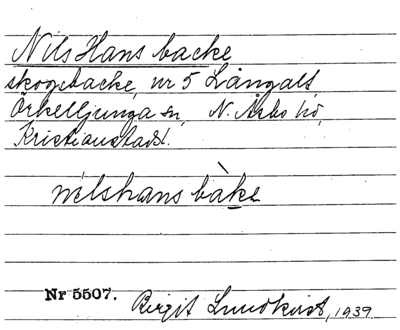 Nils Hans backe
skogsbacke, nr 5 Långalt
Örkelljunga sn, N. Åsbo hd,
Kristianstad l.
nìlshans bàke
Nr 5507. Birgit Lundkvist, 1939.